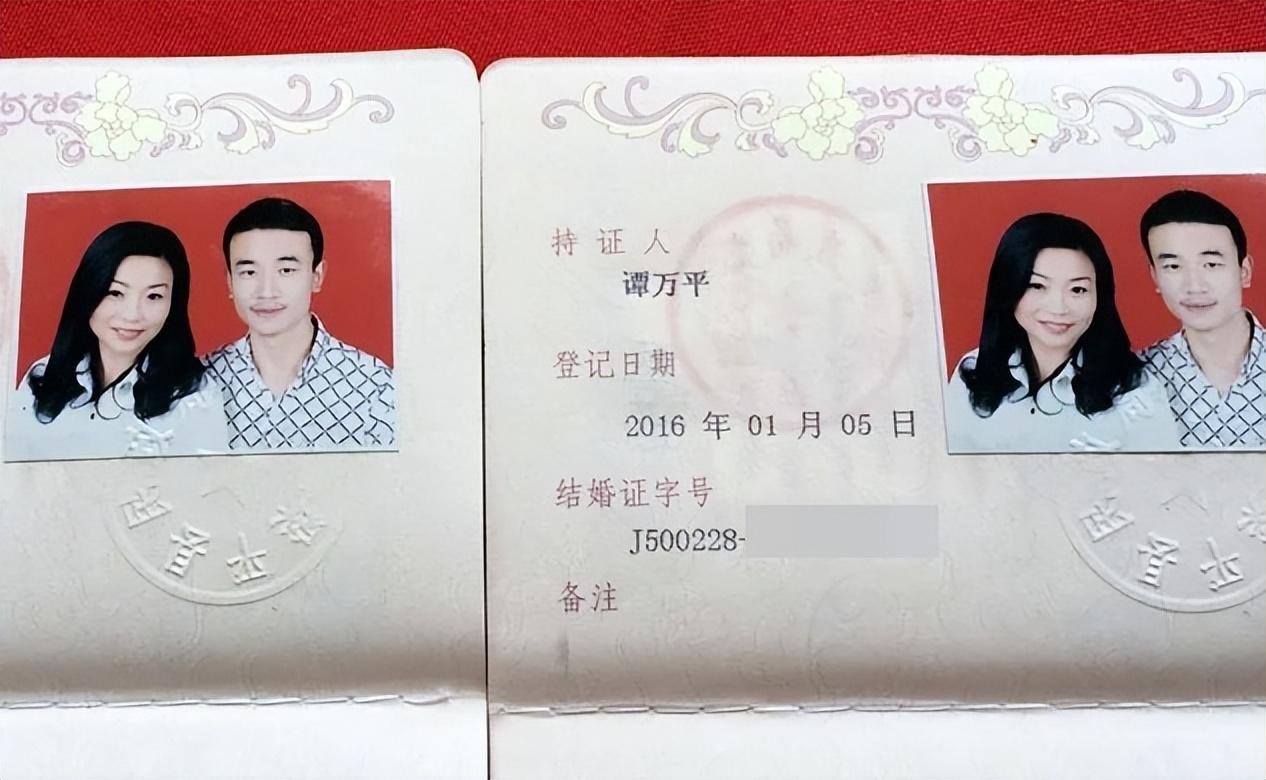 持证人
谭万平
登记日期
2016 年 01 月 05 日
结婚证字号
J500228-
备注